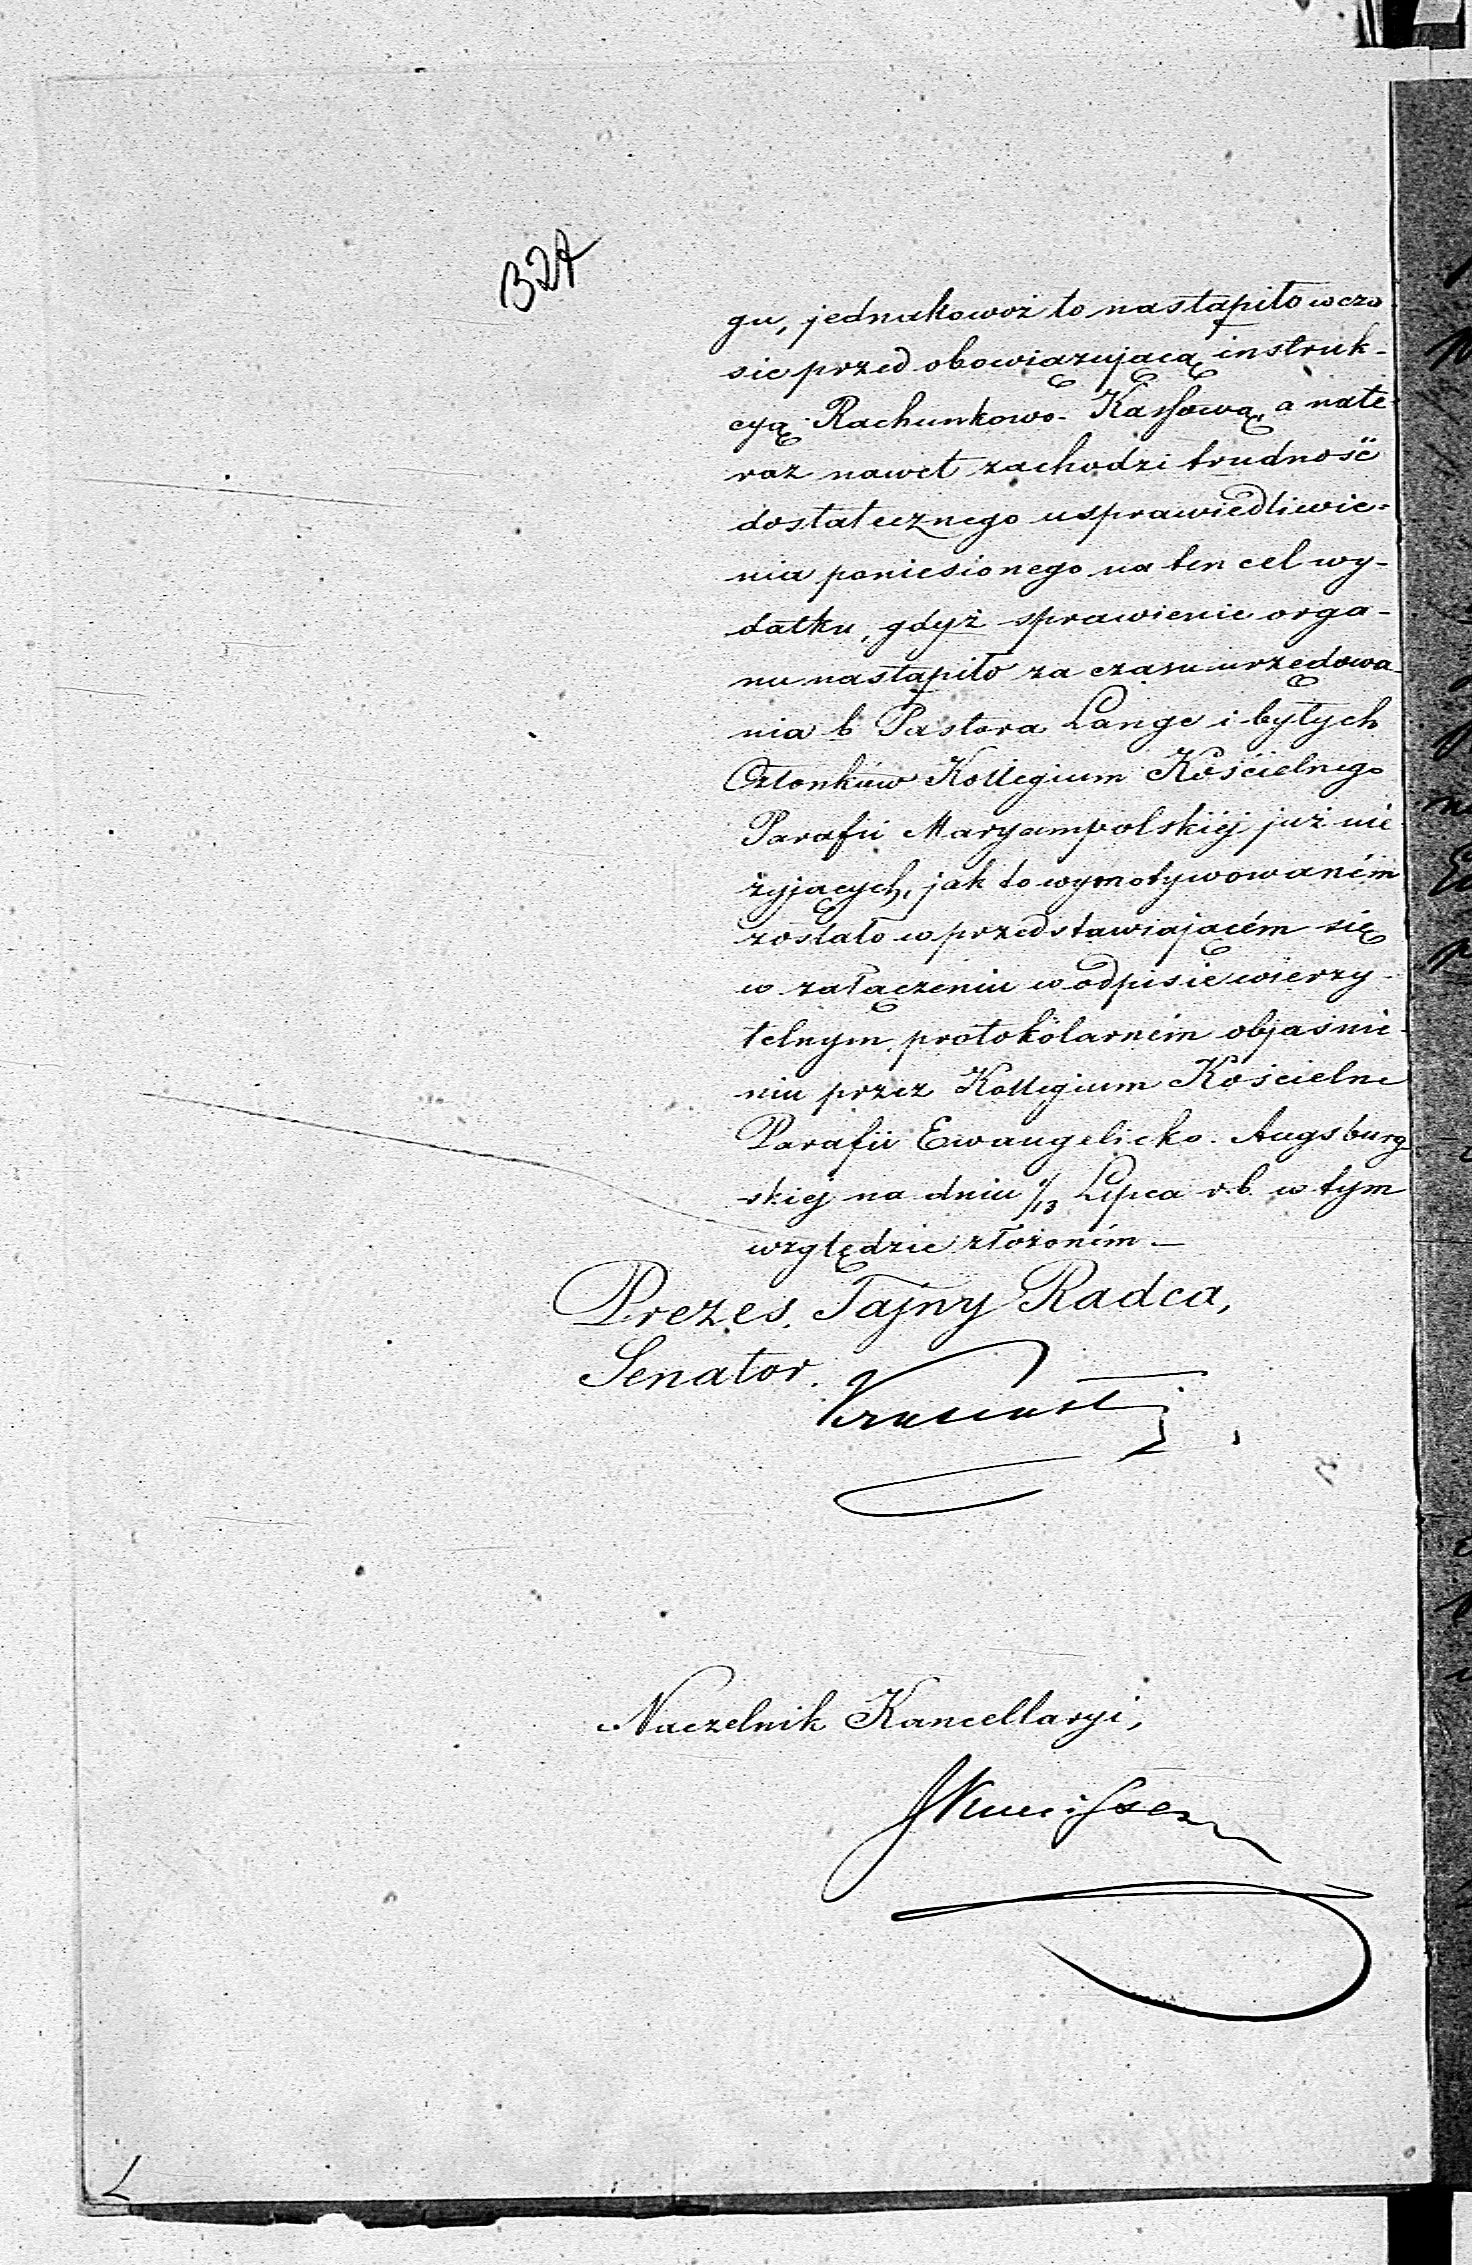 gu, jednakowoż to nastąpiło w cza-
sie przed obowiązującą instruk-
cyą Rachunkowo-Kassową, a nate-
raz nawet zachodzi trudność
dostatecznego usprawiedliwie-
nia poniesionego na ten cel wy-
datku, gdyż sprawienie orga-
nu nastąpiło za czasu urzędowa-
nia b Pastora Lange i byłych
Członków Kollegium Kościelnego
Parafii Maryampolskiéj już nie
żyjących, jak to wymotywowaném
zostało w przedstawiającém się
w załączeniu w odpisie wierzy-
telnym protokólarném objaśnie-
niu przez Kollegium Kościelne
Parafii Ewangelicko-Augsburg-
skiej na dniu 1/13 Lipca r.b. w tym
względzie złożoném.—
Prezes, Tajny Radca,
Senator.
Naczelnik Kancellaryi,